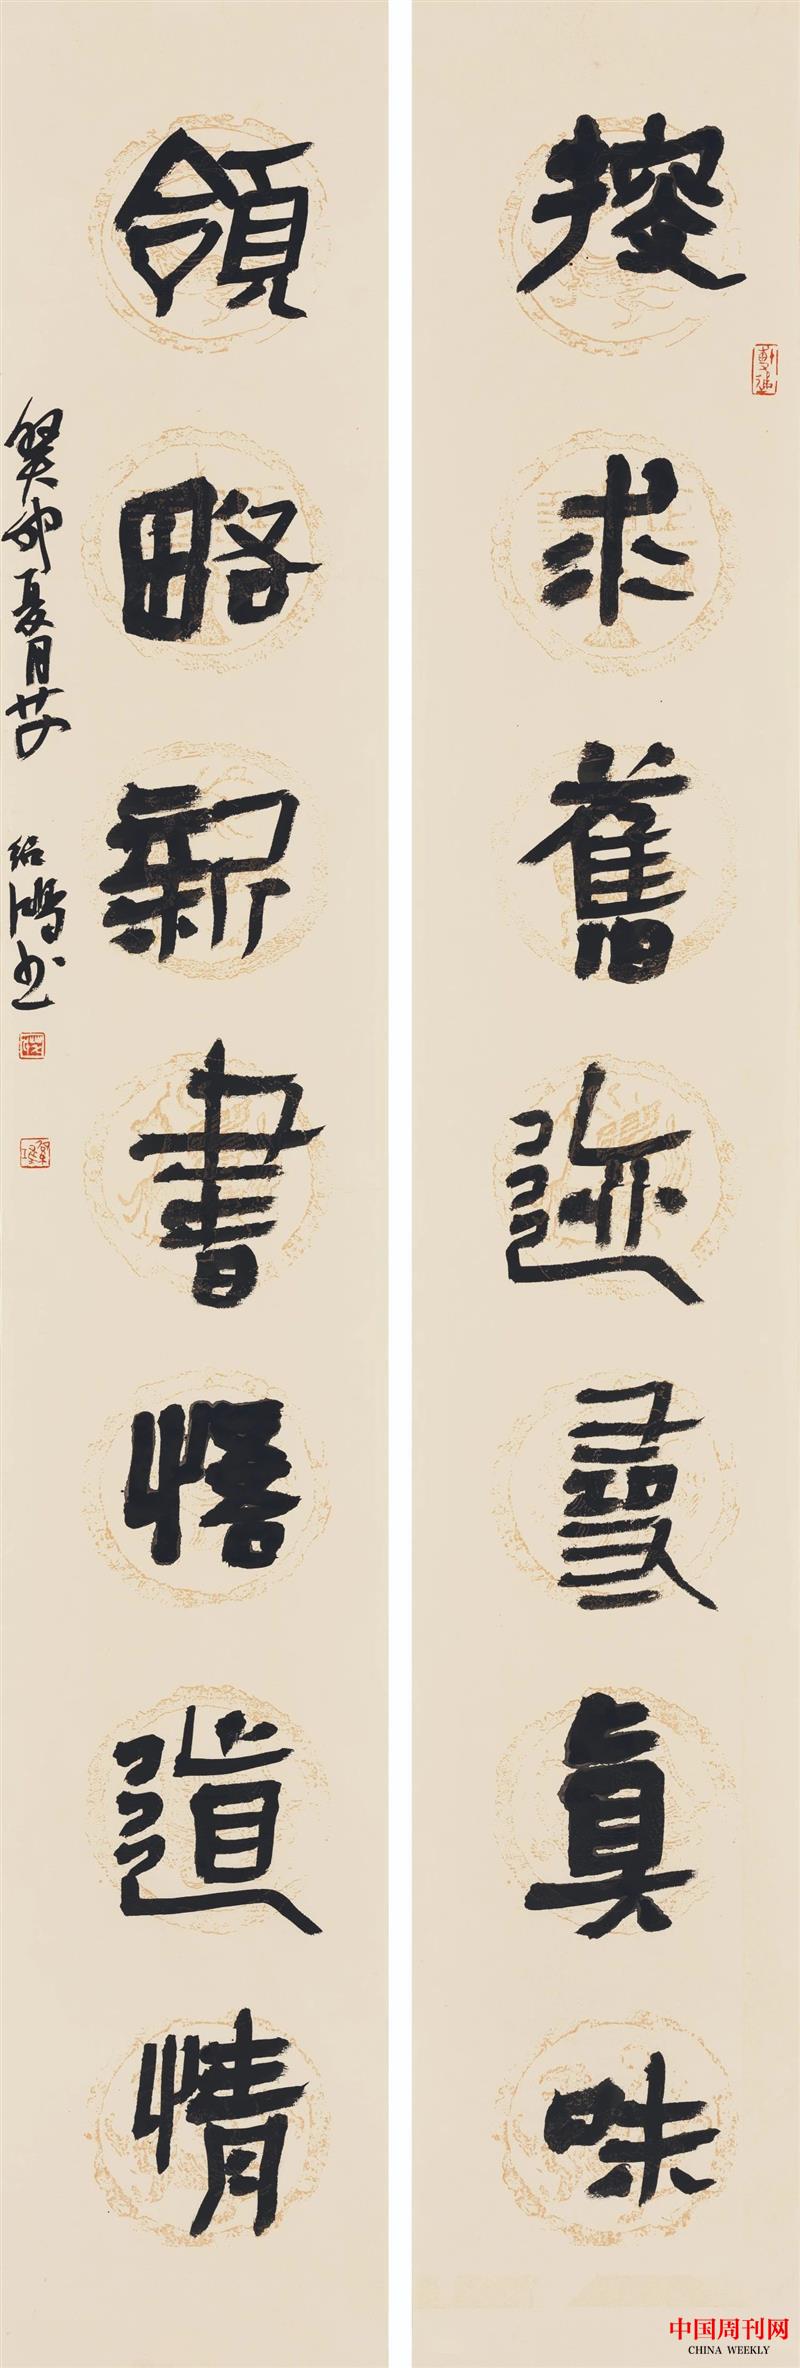 搜求舊迹尋真味
領略新書悟道情
癸卯夏月廿 紹鴻書
中国周刊网
CHINA WEEKLY